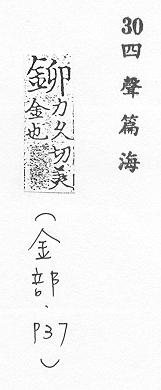 30 四聲篇海
鉚力久切美
金也
(金部.P37)